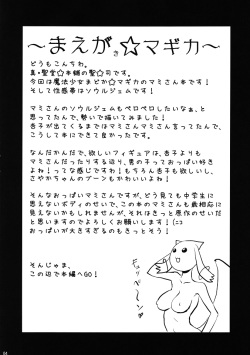 ～まえがき☆マギカ～
どうもこんちわ。
真・聖堂☆本舗の聖☆司です。
今回は魔法少女まどか☆マギカのマミさん本です!
そして性感帯はソウルジェムです。
マミさんのソウルジェムをペロペロしたいなぁ。と、
思って勢いで描いてみました!
杏子が出てくるまではマミさんマミさん言ってたんで、
こうして本にできて良かったです。
なんだかんだで、欲しいフィギュアは、杏子よりも
マミさんだったりする辺り、男の子っておっぱい好き
よね!って感じですね!もちろん杏子も欲しいし、
さやかちゃんのプーンもかわいいよね!
そんなおっぱいマミさんですが、どう見ても中学生に
見えないボディのせいで、この本のマミさんも歳相応に
見えないかもしれませんが、それはきっと原作のせいだ
と思いますのでよろしくお願いします!(ニコ
おっぱいが大きすぎるのもきっとそう!
そんじゃま、
この辺で本編へGO!